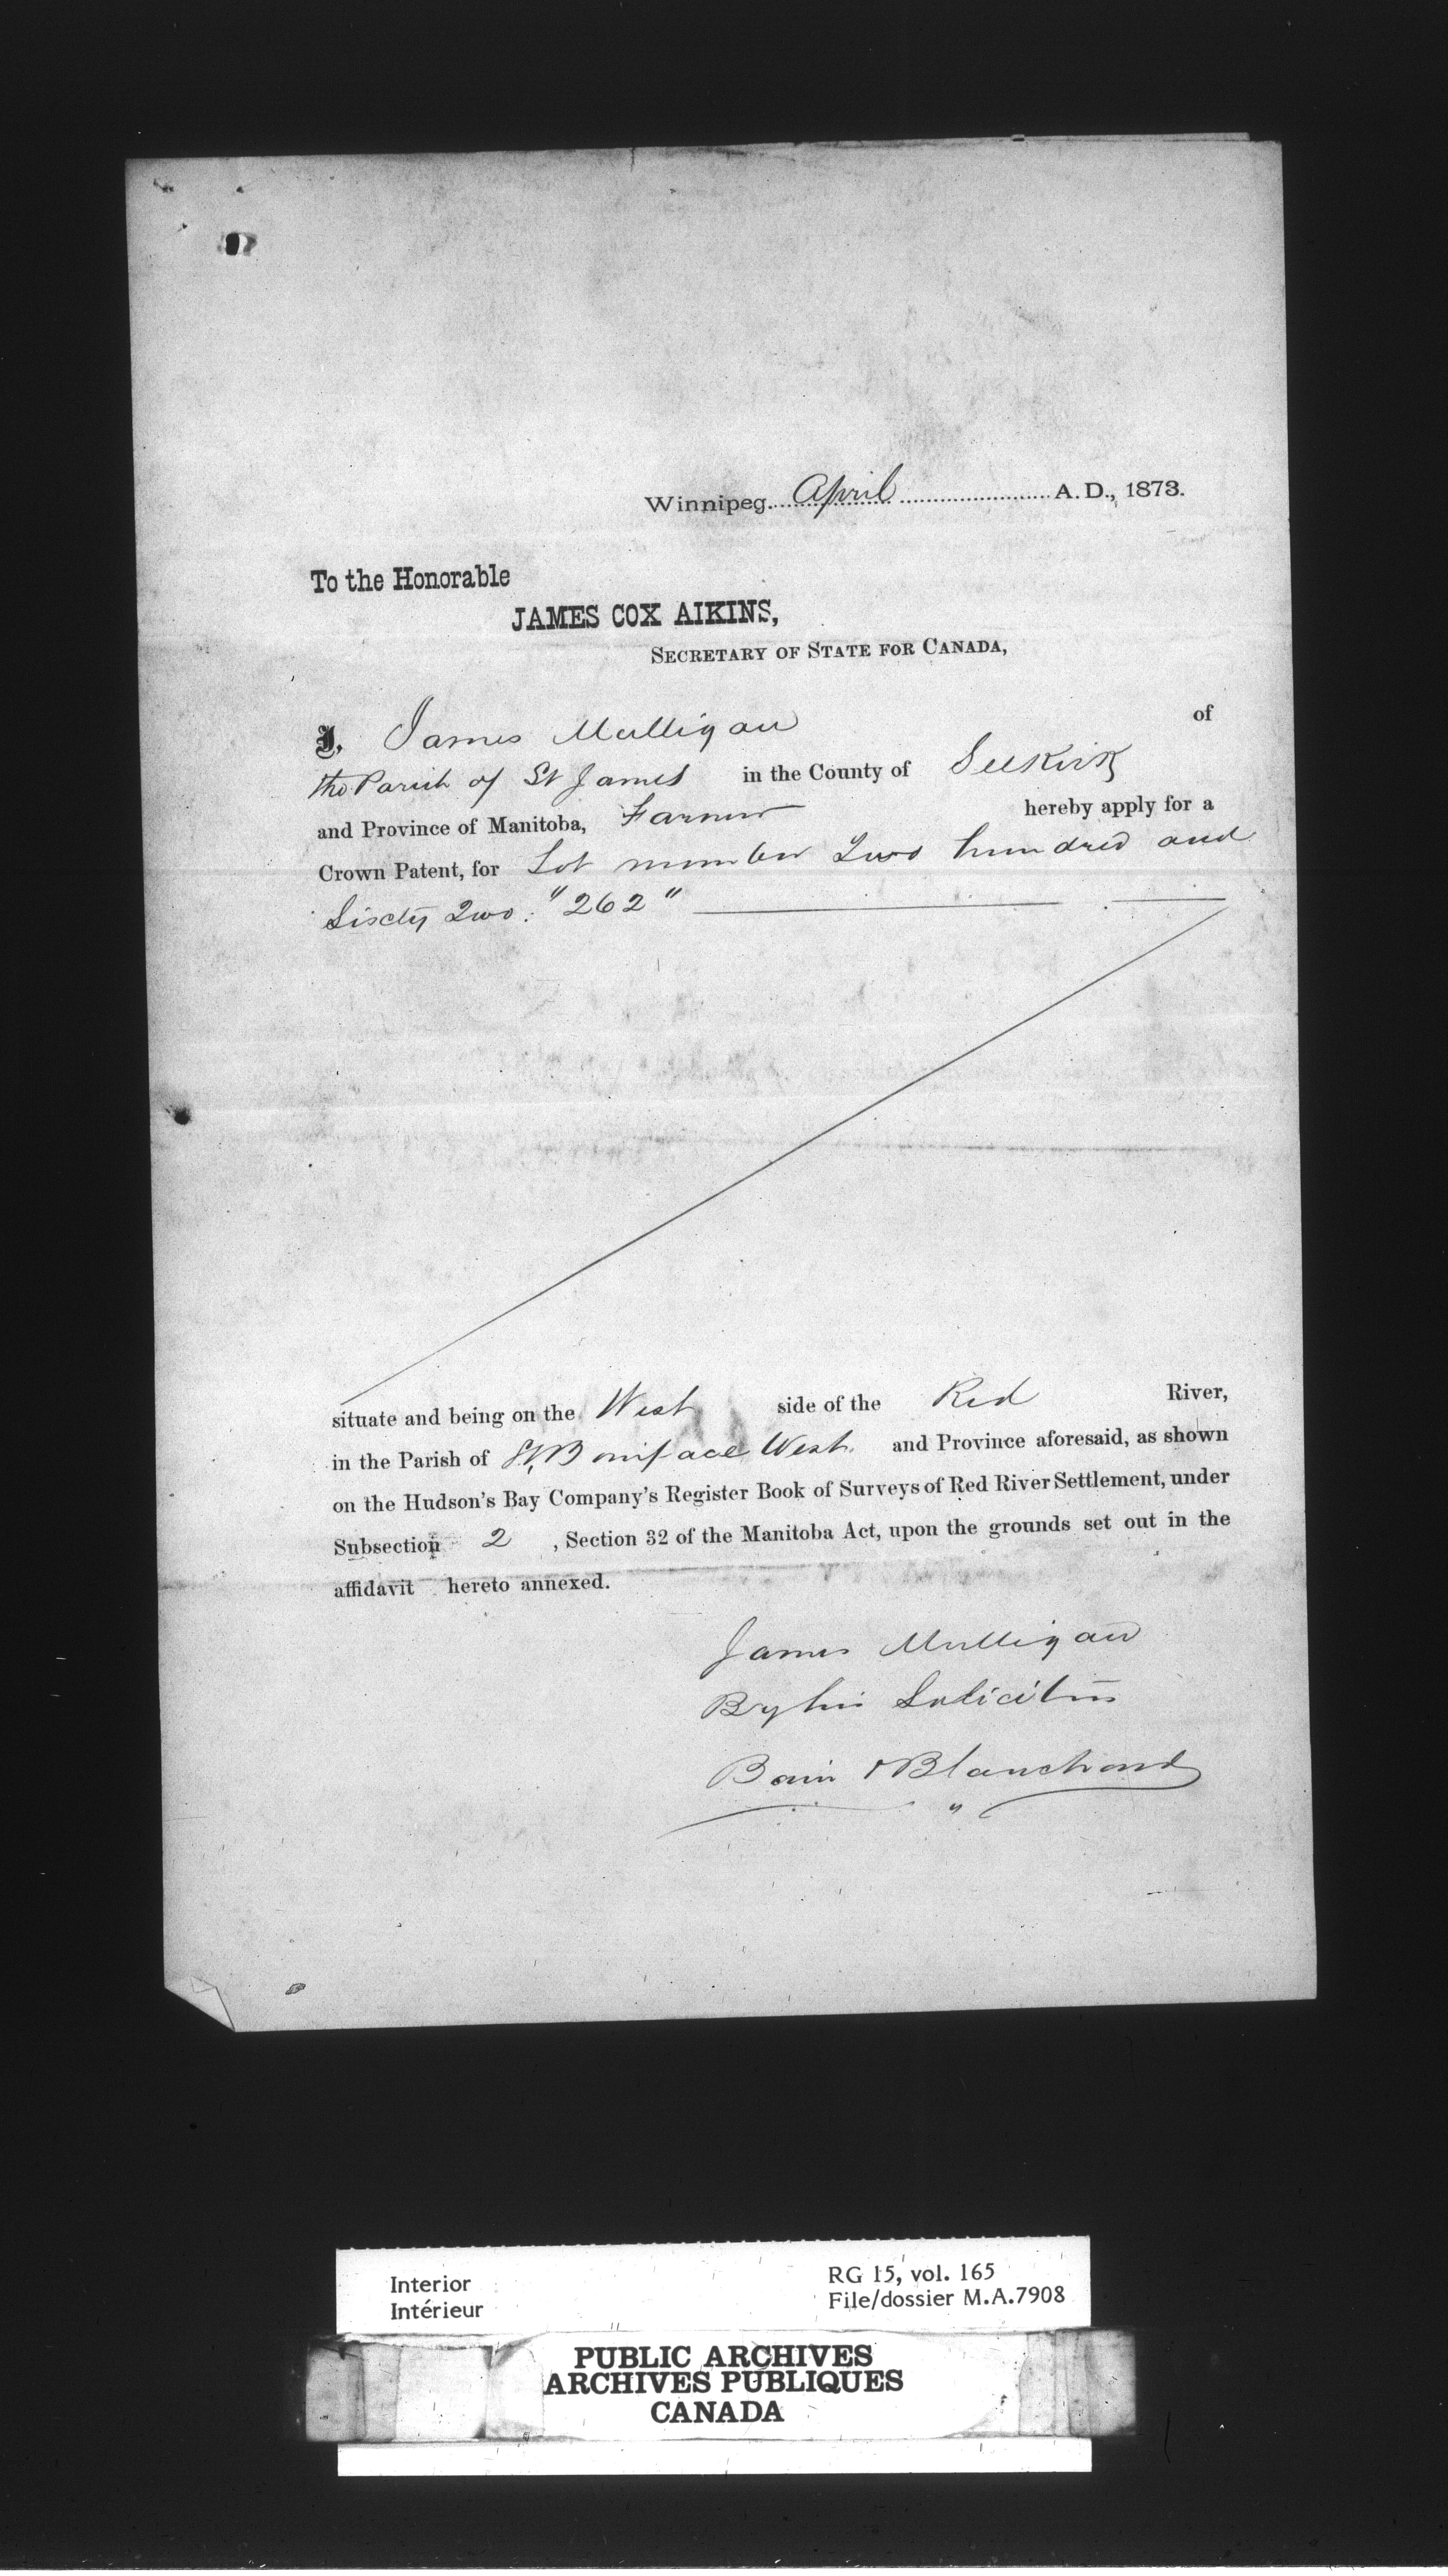 Winnipeg. April A. D., 1873.
To the Honorable
JAMES COX AIKINS,
SECRETARY OF STATE FOR CANADA,
I, James Mulligan of
the Parish of St James in the County of Selkirk
and Province of Manitoba, Farmer hereby apply for a
Crown Patent, for Lot number Two hundred and
Sixty Two. "262"
situate and being on the West side of the Red River,
in the Parish of St, Boniface West. and Province aforesaid, as shown
on the Hudson's Bay Company's Register Book of Surveys of Red River Settlement, under
Subsection 2 , Section 32 of the Manitoba Act, upon the grounds set out in the
affidavit hereto annexed.
James Mulligan
By his Solicitors
Bain & Blanchard
Interior
Intérieur
RG 15, vol. 165
File/dossier M.A.7908
PUBLIC ARCHIVES
ARCHIVES PUBLIQUES
CANADA